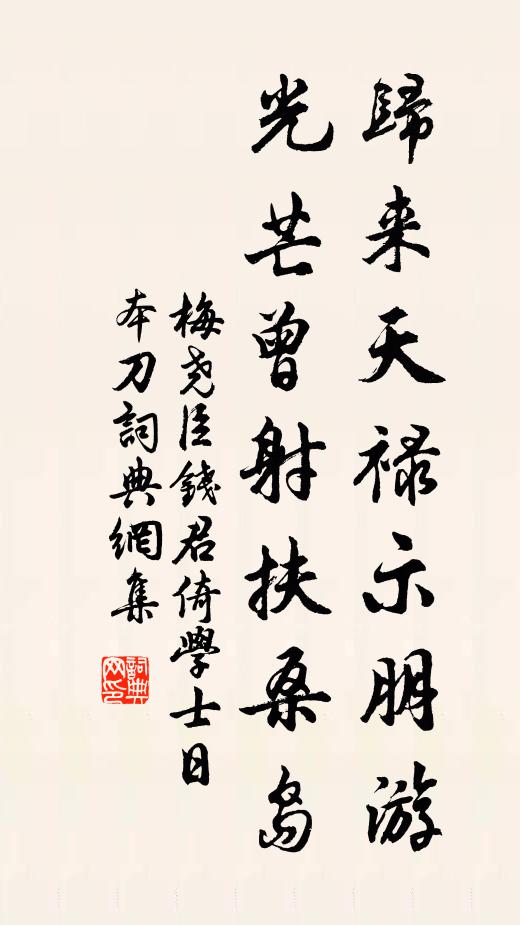 歸来天禄示朋游
光芒曾射扶桑島
梅尧臣錢君倚學士日
本刀詞典網集
詞典网印